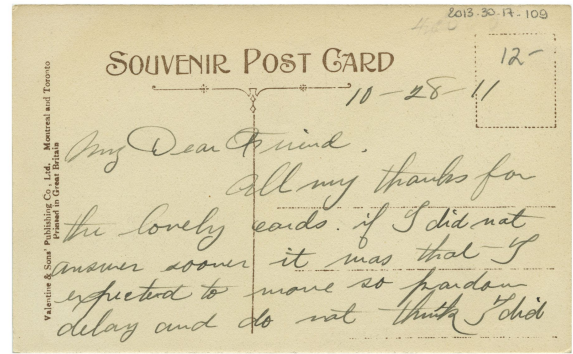 2013-30-17-109
SOUVENIR POST CARD
12-
10-28-11
Valentine & Sons' Publishing Co., Ltd. Montreal and Toronto
Printed in Great Britain
My Dear Friend.
All my thanks for
the lovely cards. if I did not
answer sooner it was that I
expected to move so pardon
delay and do not think I did